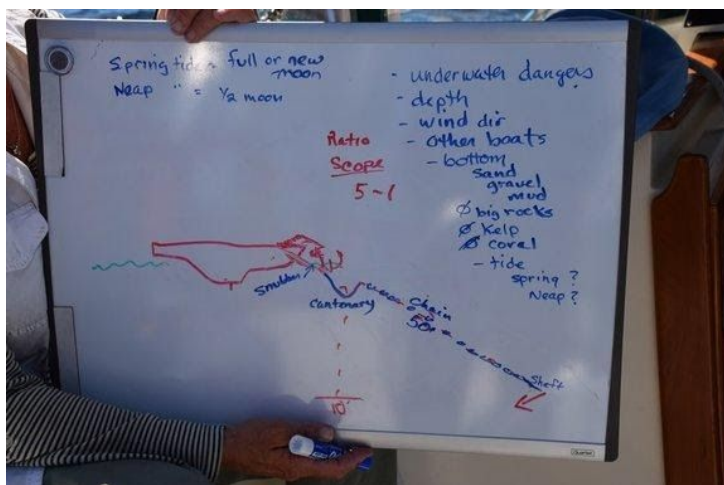 Spring tide = full or new
moon
Neap " = 1/2 moon
- underwater dangers
- depth
- wind dir
- other boats
- bottom
sand
gravel
mud
Ø big rocks
Ø kelp
Ø coral
- tide
spring ?
Neap ?
Ratio
Scope
5-1
Snubber
Cantenary
Chain
50
Shaft
10'
Quartet